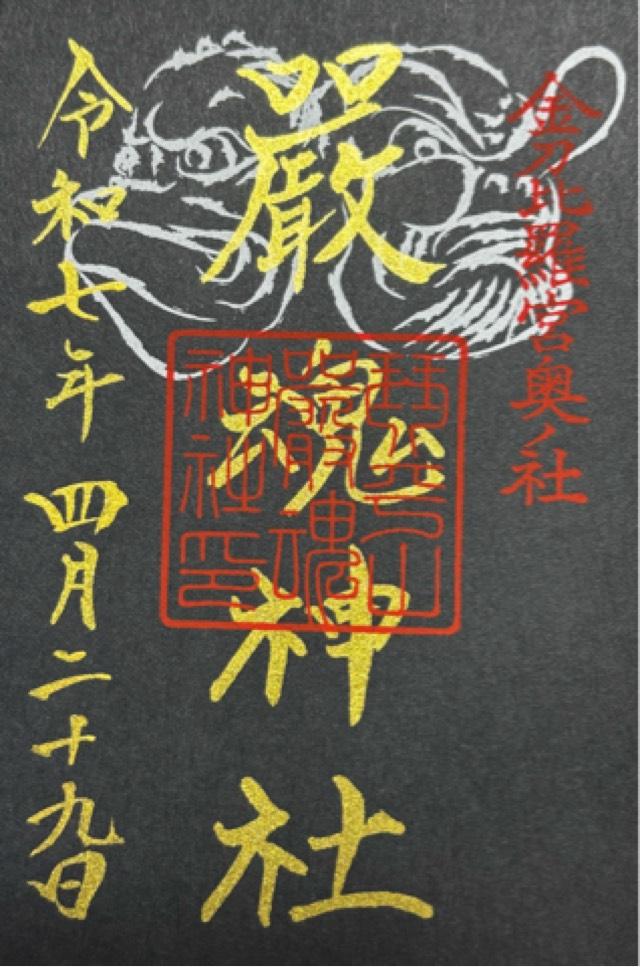 金刀比羅宮奥ノ社
嚴魂神社
琴平山
嚴魂
神社印
令和七年 四月二十九日